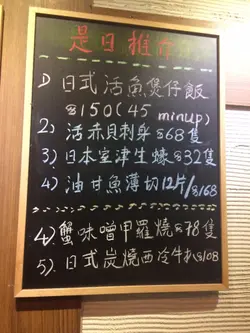 是日推介
1) 日式活魚煲仔飯
$150(45 minup)
2) 活赤貝刺身 $68隻
3) 日本室津生蠔 $32隻
4) 油甘魚薄切12片/$168
4) 蟹味噌甲羅燒 $78隻
5). 日式炭燒西冷牛扒 $108